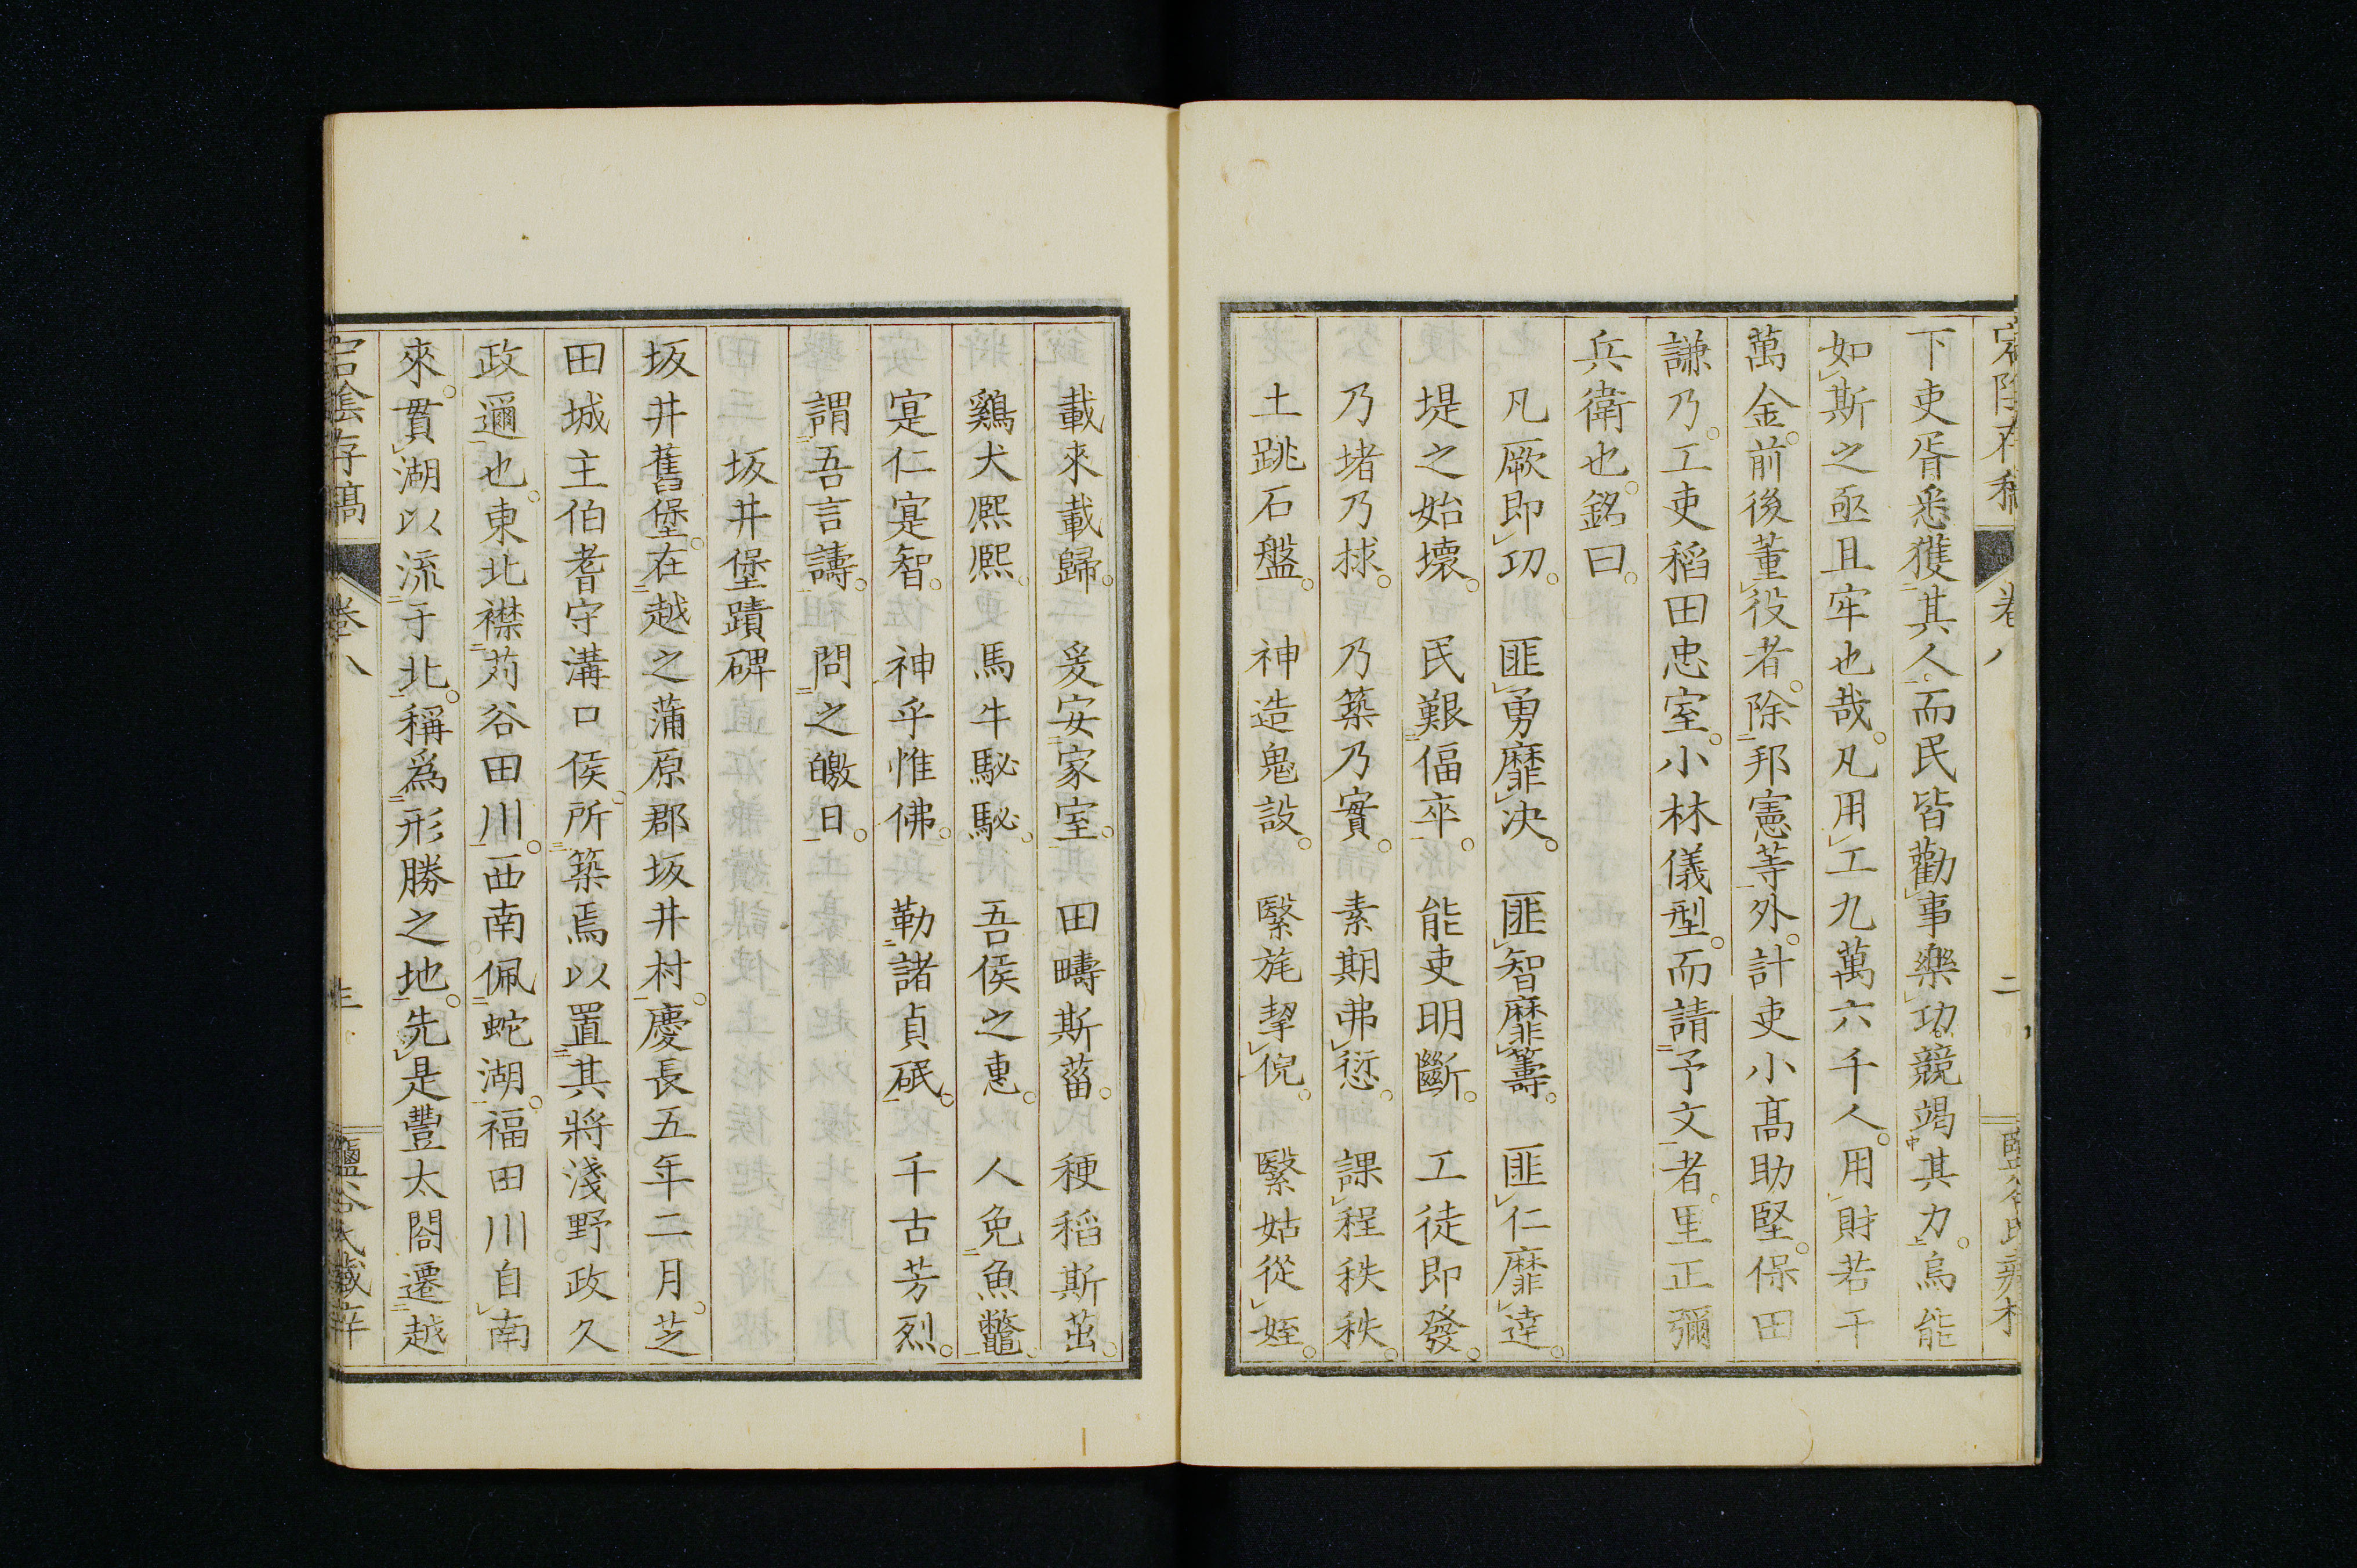 下吏胥悉獲其人而民皆勸事樂功競竭其力烏能
如斯之亟且牢也哉。凡用工九萬六千人。用財若干
萬金。前後董役者。除邦憲等外。計吏小髙助堅。保田
謙乃。工吏稻田忠室。小林儀型。而請予文者。里正彌
兵衛也。銘曰。
凡厥即功。匪勇靡决。匪智靡籌。匪仁靡達。
堤之始壞。民艱偪卒。能吏明斷。工徒即發。
乃堵乃捄。乃築乃實。素期弗愆。課程秩秩。
土跳石盤。神造鬼設。繄旄挈倪。繄姑從姪。
載來載歸。爰安家室。田疇斯菑。稉稻斯茁。
鷄犬熈熈。馬牛駜駜。吾侯之惠。人免魚鼈。
寔仁寔智。神乎惟佛。勒諸貞砥。千古芳烈。
謂吾言譸。問之皦日。
坂井堡蹟碑
坂井舊堡。在越之蒲原郡坂井村。慶長五年二月。芝
田城主伯耆守溝口侯。所築焉以置其將淺野政久
政邇也。東北襟苅谷田川。西南佩蛇湖。福田川自南
來。貫湖以流于北。稱爲形勝之地。先是豐太閤遷越
宕陰存稿
卷八
三